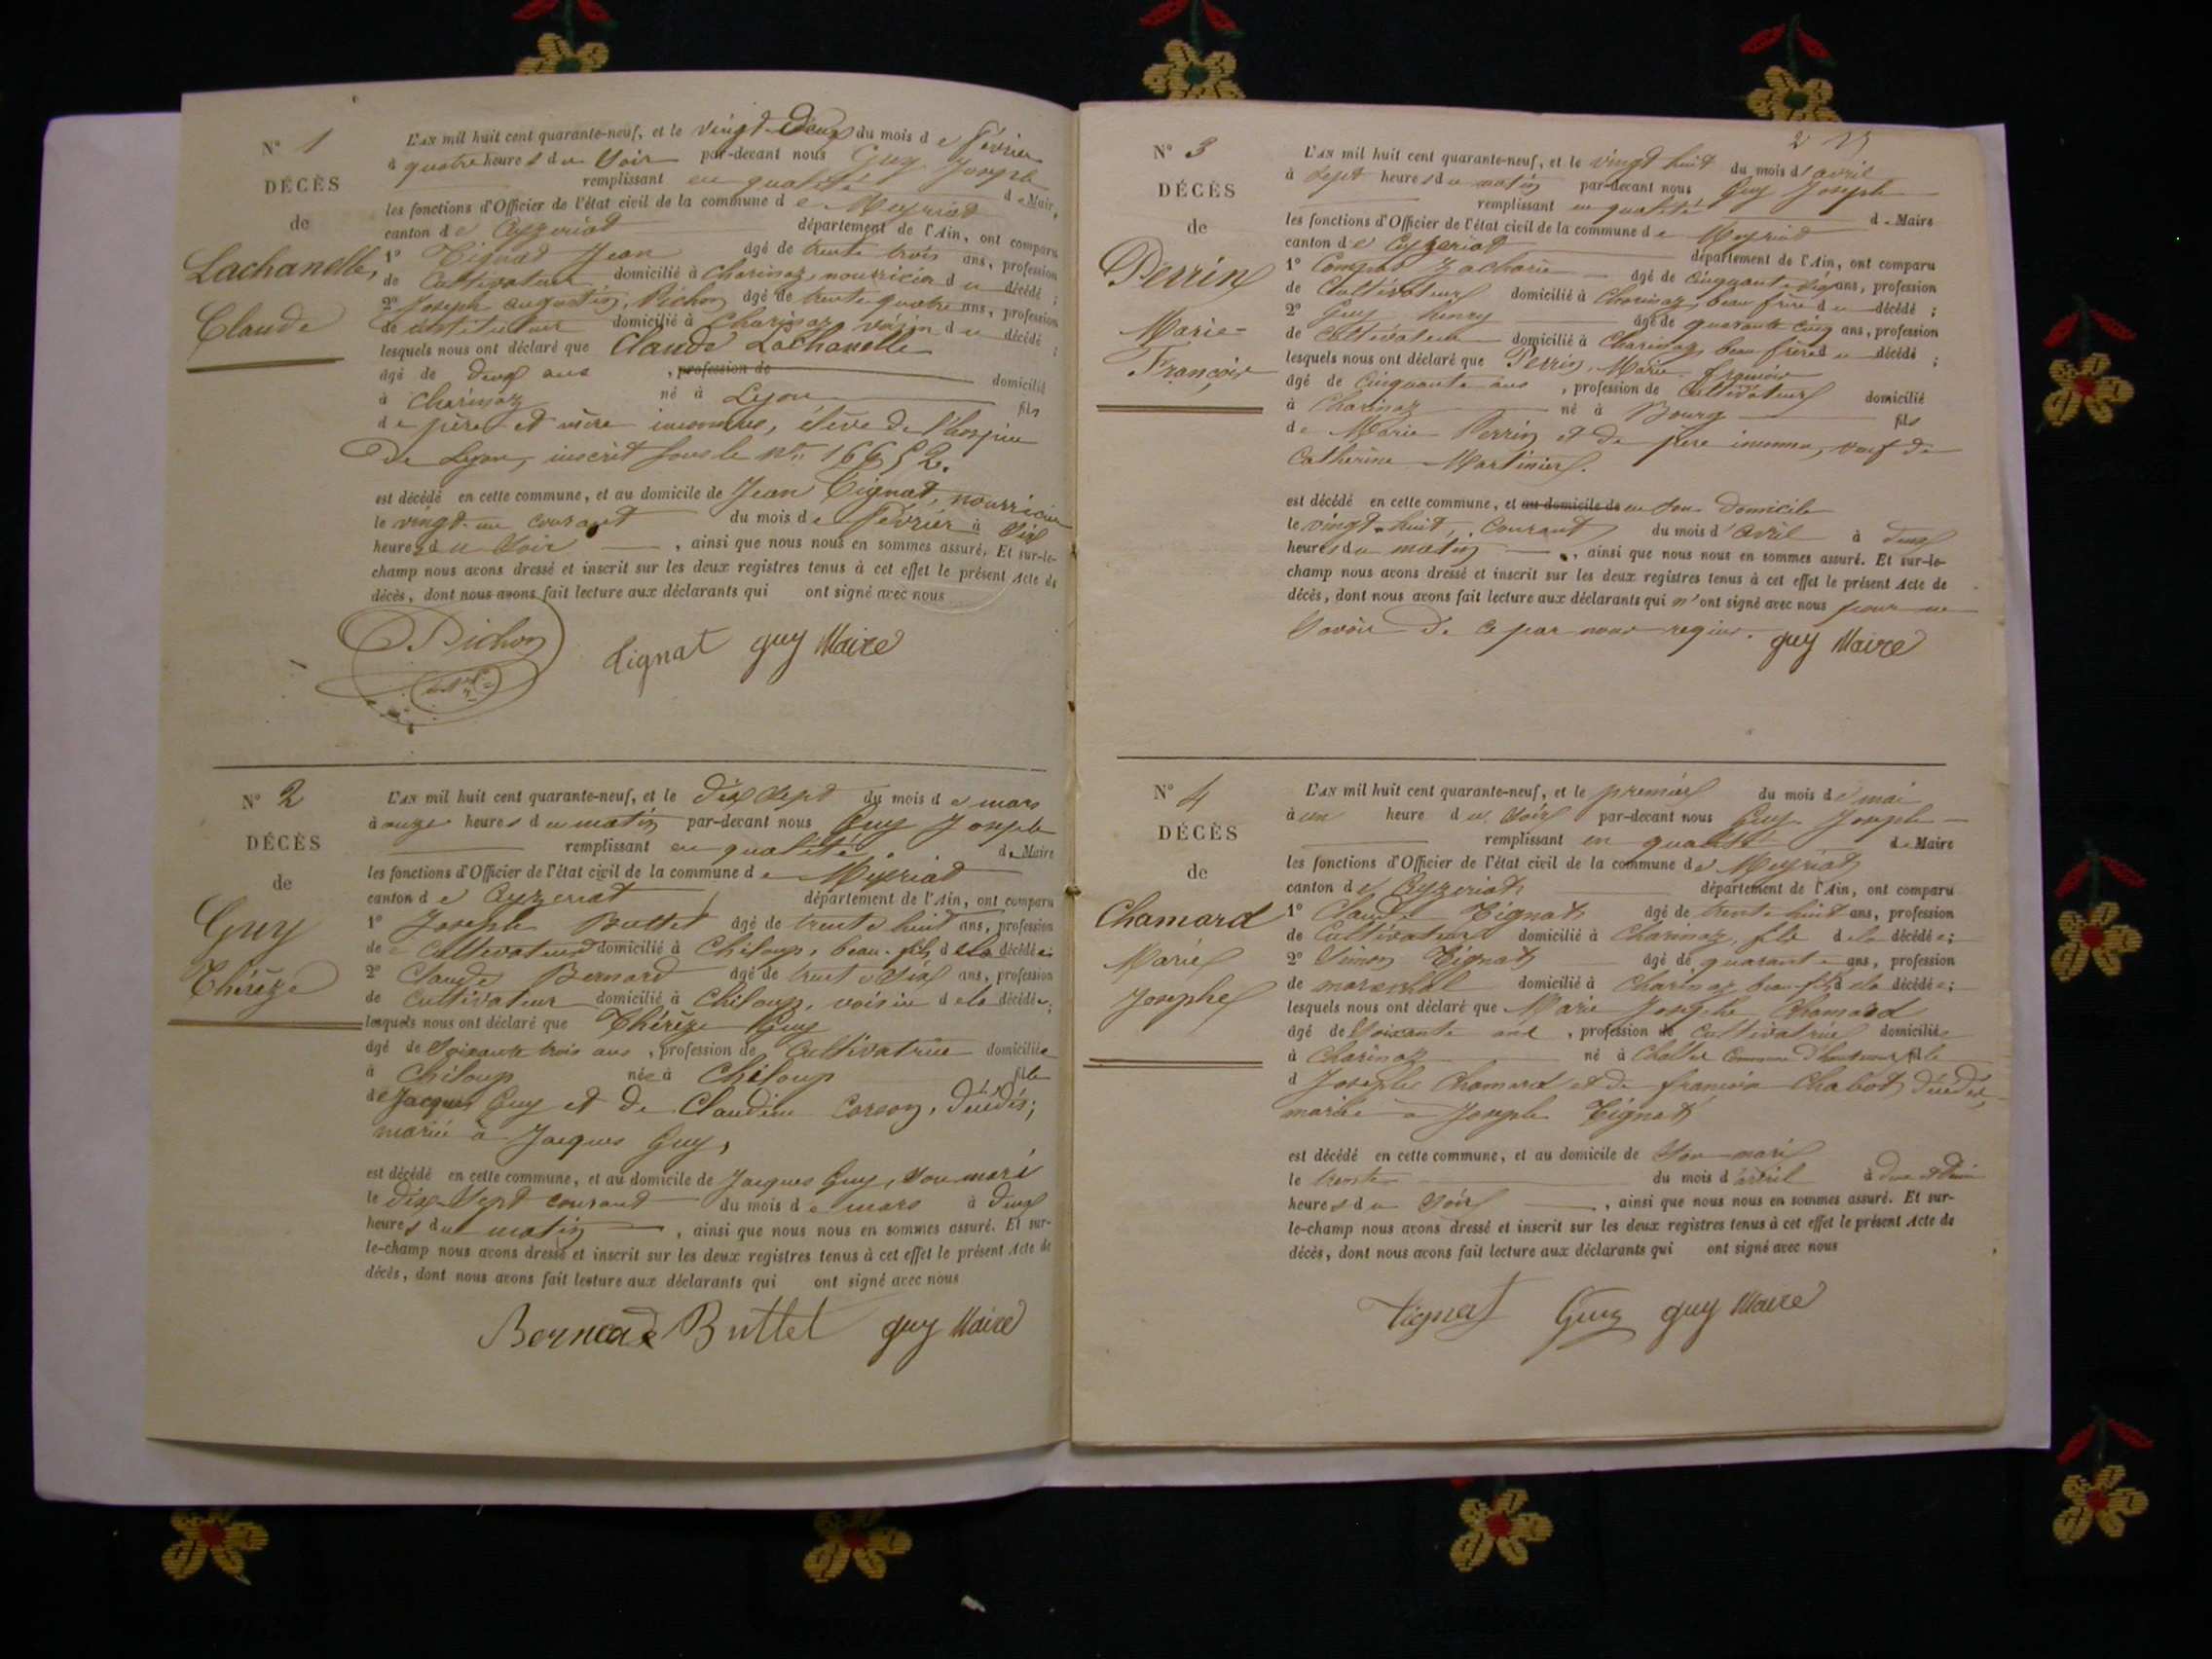 N° 1
DÉCÈS
de
Lachanelle,
Claude
L'AN mil huit cent quarante-neuf, et le vingt-deux du mois de Février
à quatre heures du Soir par-devant nous Guy Joseph
remplissant en qualité de Maire,
les fonctions d'Officier de l'état civil de la commune de Meyriat
canton de Ceyzeriat département de l'Ain, ont comparu
1° Tignat Jean âgé de trente trois ans, profession
de Cultivateur domicilié à Charinaz, nourricier du décédé ;
2° Joseph Augustin Pichon âgé de trente quatre ans, profession
de instituteur domicilié à Charinaz voisin du décédé ;
lesquels nous ont déclaré que Claude Lachanelle
âgé de deux ans , profession de domicilié
à Charinaz né à Lyon fils
de père et mère inconnus, élève de l'hospice
De Lyon, inscrit sous le N°
est décédé en cette commune, et au domicile de Jean Tignat, nourricier
le vingt-un courant du mois de Février à Six
heures du Soir , ainsi que nous nous en sommes assuré. Et sur-le-
champ nous avons dressé et inscrit sur les deux registres tenus à cet effet le présent Acte de
décès, dont nous avons fait lecture aux déclarants qui ont signé avec nous
Pichon tignat guy Maire
N° 2
DÉCÈS
de
Guy
Thérèze
L'AN mil huit cent quarante-neuf, et le dix Sept du mois de mars
à onze heures du matin par-devant nous Guy Joseph
remplissant en qualité de Maire
les fonctions d'Officier de l'état civil de la commune de Meyriat
canton de Ceyzeriat département de l'Ain, ont comparu
1° Joseph Buttet âgé de trente huit ans, profession
de Cultivateur domicilié à Chiloup, beau-fils de la décédée;
2° Claude Bernard âgé de trente Six ans, profession
de Cultivateur domicilié à Chiloup, voisin de la décédée;
lesquels nous ont déclaré que Thérèze Guy
âgé de Soixante trois ans , profession de Cultivatrice domiciliée
à Chiloup née à Chiloup fille
de Jacques Guy et de Claudine , décédés;
mariée à Jacques Guy,
est décédé en cette commune, et au domicile de Jacques Guy, Son mari
le dix-Sept courant du mois de mars à deux
heures du matin , ainsi que nous nous en sommes assuré. Et sur-
le-champ nous avons dressé et inscrit sur les deux registres tenus à cet effet le présent Acte de
décès, dont nous avons fait lecture aux déclarants qui ont signé avec nous
Bernard Buttet guy Maire
N° 3
DÉCÈS
de
Perrin
Marie-
François
L'AN mil huit cent quarante-neuf, et le vingt huit du mois d'avril
à Sept heures du matin par-devant nous Guy Joseph
remplissant en qualité de Maire
les fonctions d'Officier de l'état civil de la commune de Meyriat
canton de Ceyzeriat département de l'Ain, ont comparu
1° Zacharie âgé de Cinquante ans, profession
de Cultivateur domicilié à Charinaz, beau frère du décédé ;
2° Guy henry âgé de quarante cinq ans, profession
de Cultivateur domicilié à Charinaz beau frère du décédé ;
lesquels nous ont déclaré que Perrin, Marie-françois
âgé de Cinquante ans , profession de Cultivateur domicilié
à Charinaz né à Bourg fils
de Marie Perrin et de père inconnu, veuf de
Catherine Martinier.
est décédé en cette commune, et au domicile de en Son Domicile
le vingt-huit, courant du mois d'avril à deux
heures du matin , ainsi que nous nous en sommes assuré. Et sur-le-
champ nous avons dressé et inscrit sur les deux registres tenus à cet effet le présent Acte de
décès, dont nous avons fait lecture aux déclarants qui n'ont signé avec nous pour ne
Savoir De ce par nous requis. guy Maire
N° 4
DÉCÈS
de
Chamard
Marie
Josephe
L'AN mil huit cent quarante-neuf, et le premier du mois de mai
à un heure du Soir par-devant nous Guy Joseph
remplissant en qualité de Maire
les fonctions d'Officier de l'état civil de la commune de Meyriat
canton de Ceyzeriat département de l'Ain, ont comparu
1° Claude Tignat âgé de trente huit ans, profession
de Cultivateur domicilié à Charinaz, fils de la décédée;
2° Simon Tignat âgé de quarante ans, profession
de maréchal domicilié à Charinaz beau fils de la décédée;
lesquels nous ont déclaré que Marie Josephe Chamard
âgé de Soixante ans , profession de Cultivatrice domiciliée
à Charinaz né à commune d' fille
d Joseph Chamard et de françoise Chabot, décédés,
mariée à Joseph Tignat
est décédé en cette commune, et au domicile de Son mari
le trente du mois d'avril à deux et demie
heures du Soir , ainsi que nous nous en sommes assuré. Et sur-
le-champ nous avons dressé et inscrit sur les deux registres tenus à cet effet le présent Acte de
décès, dont nous avons fait lecture aux déclarants qui ont signé avec nous
Tignat Guy guy Maire